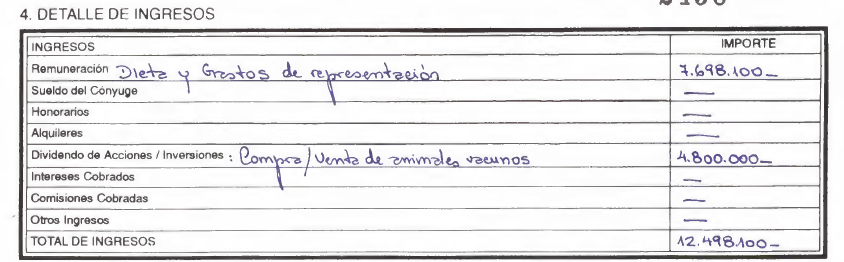 4. DETALLE DE INGRESOS
INGRESOS IMPORTE
Remuneración Dieta y Gastos de representación 7.698.100_
Sueldo del Cónyuge —
Honorarios —
Alquileres —
Dividendo de Acciones / Inversiones : Compra/Venta de animales vacunos 4.800.000_
Intereses Cobrados —
Comisiones Cobradas —
Otros Ingresos —
TOTAL DE INGRESOS 12.498.100_